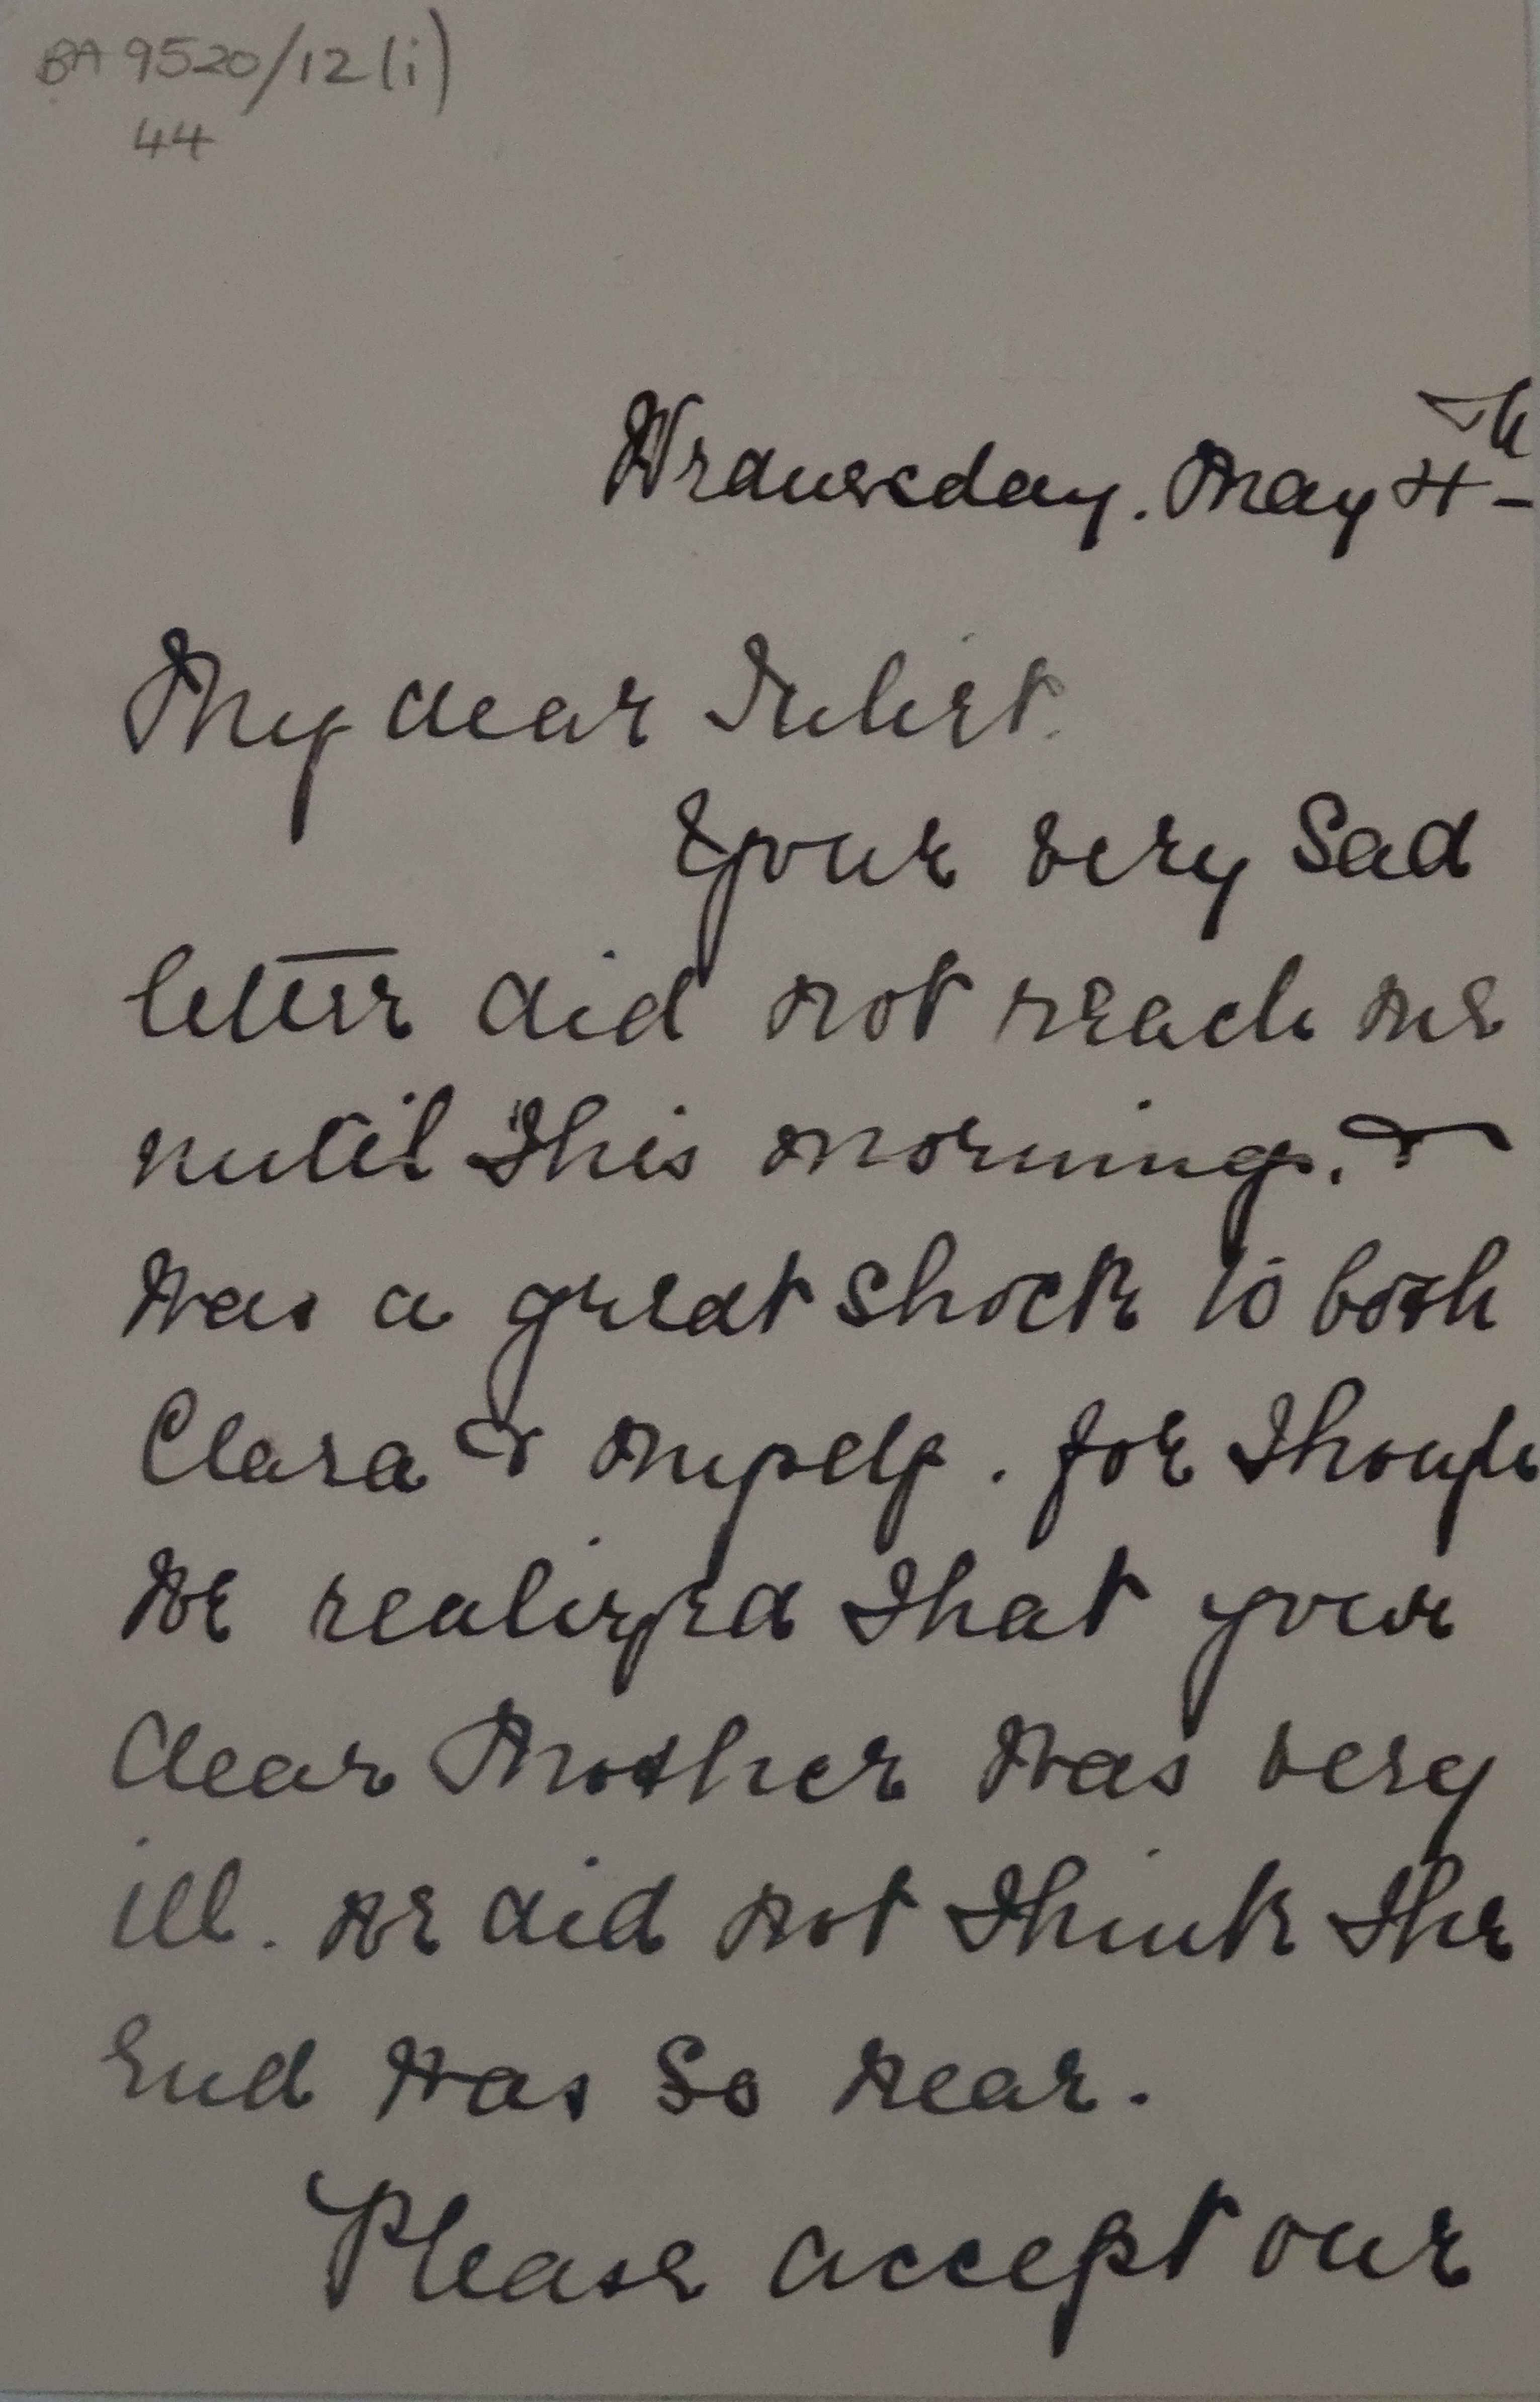 BA 9520/12(i)
44
Wednesday. May 4th
My dear Juliet.
Your very Sad
letter did not reach me
until this morning. &
was a great shock to both
Clara & myself. for though
we realized that your
dear Mother was very
ill. we did not think the
End was so near.
Please accept our